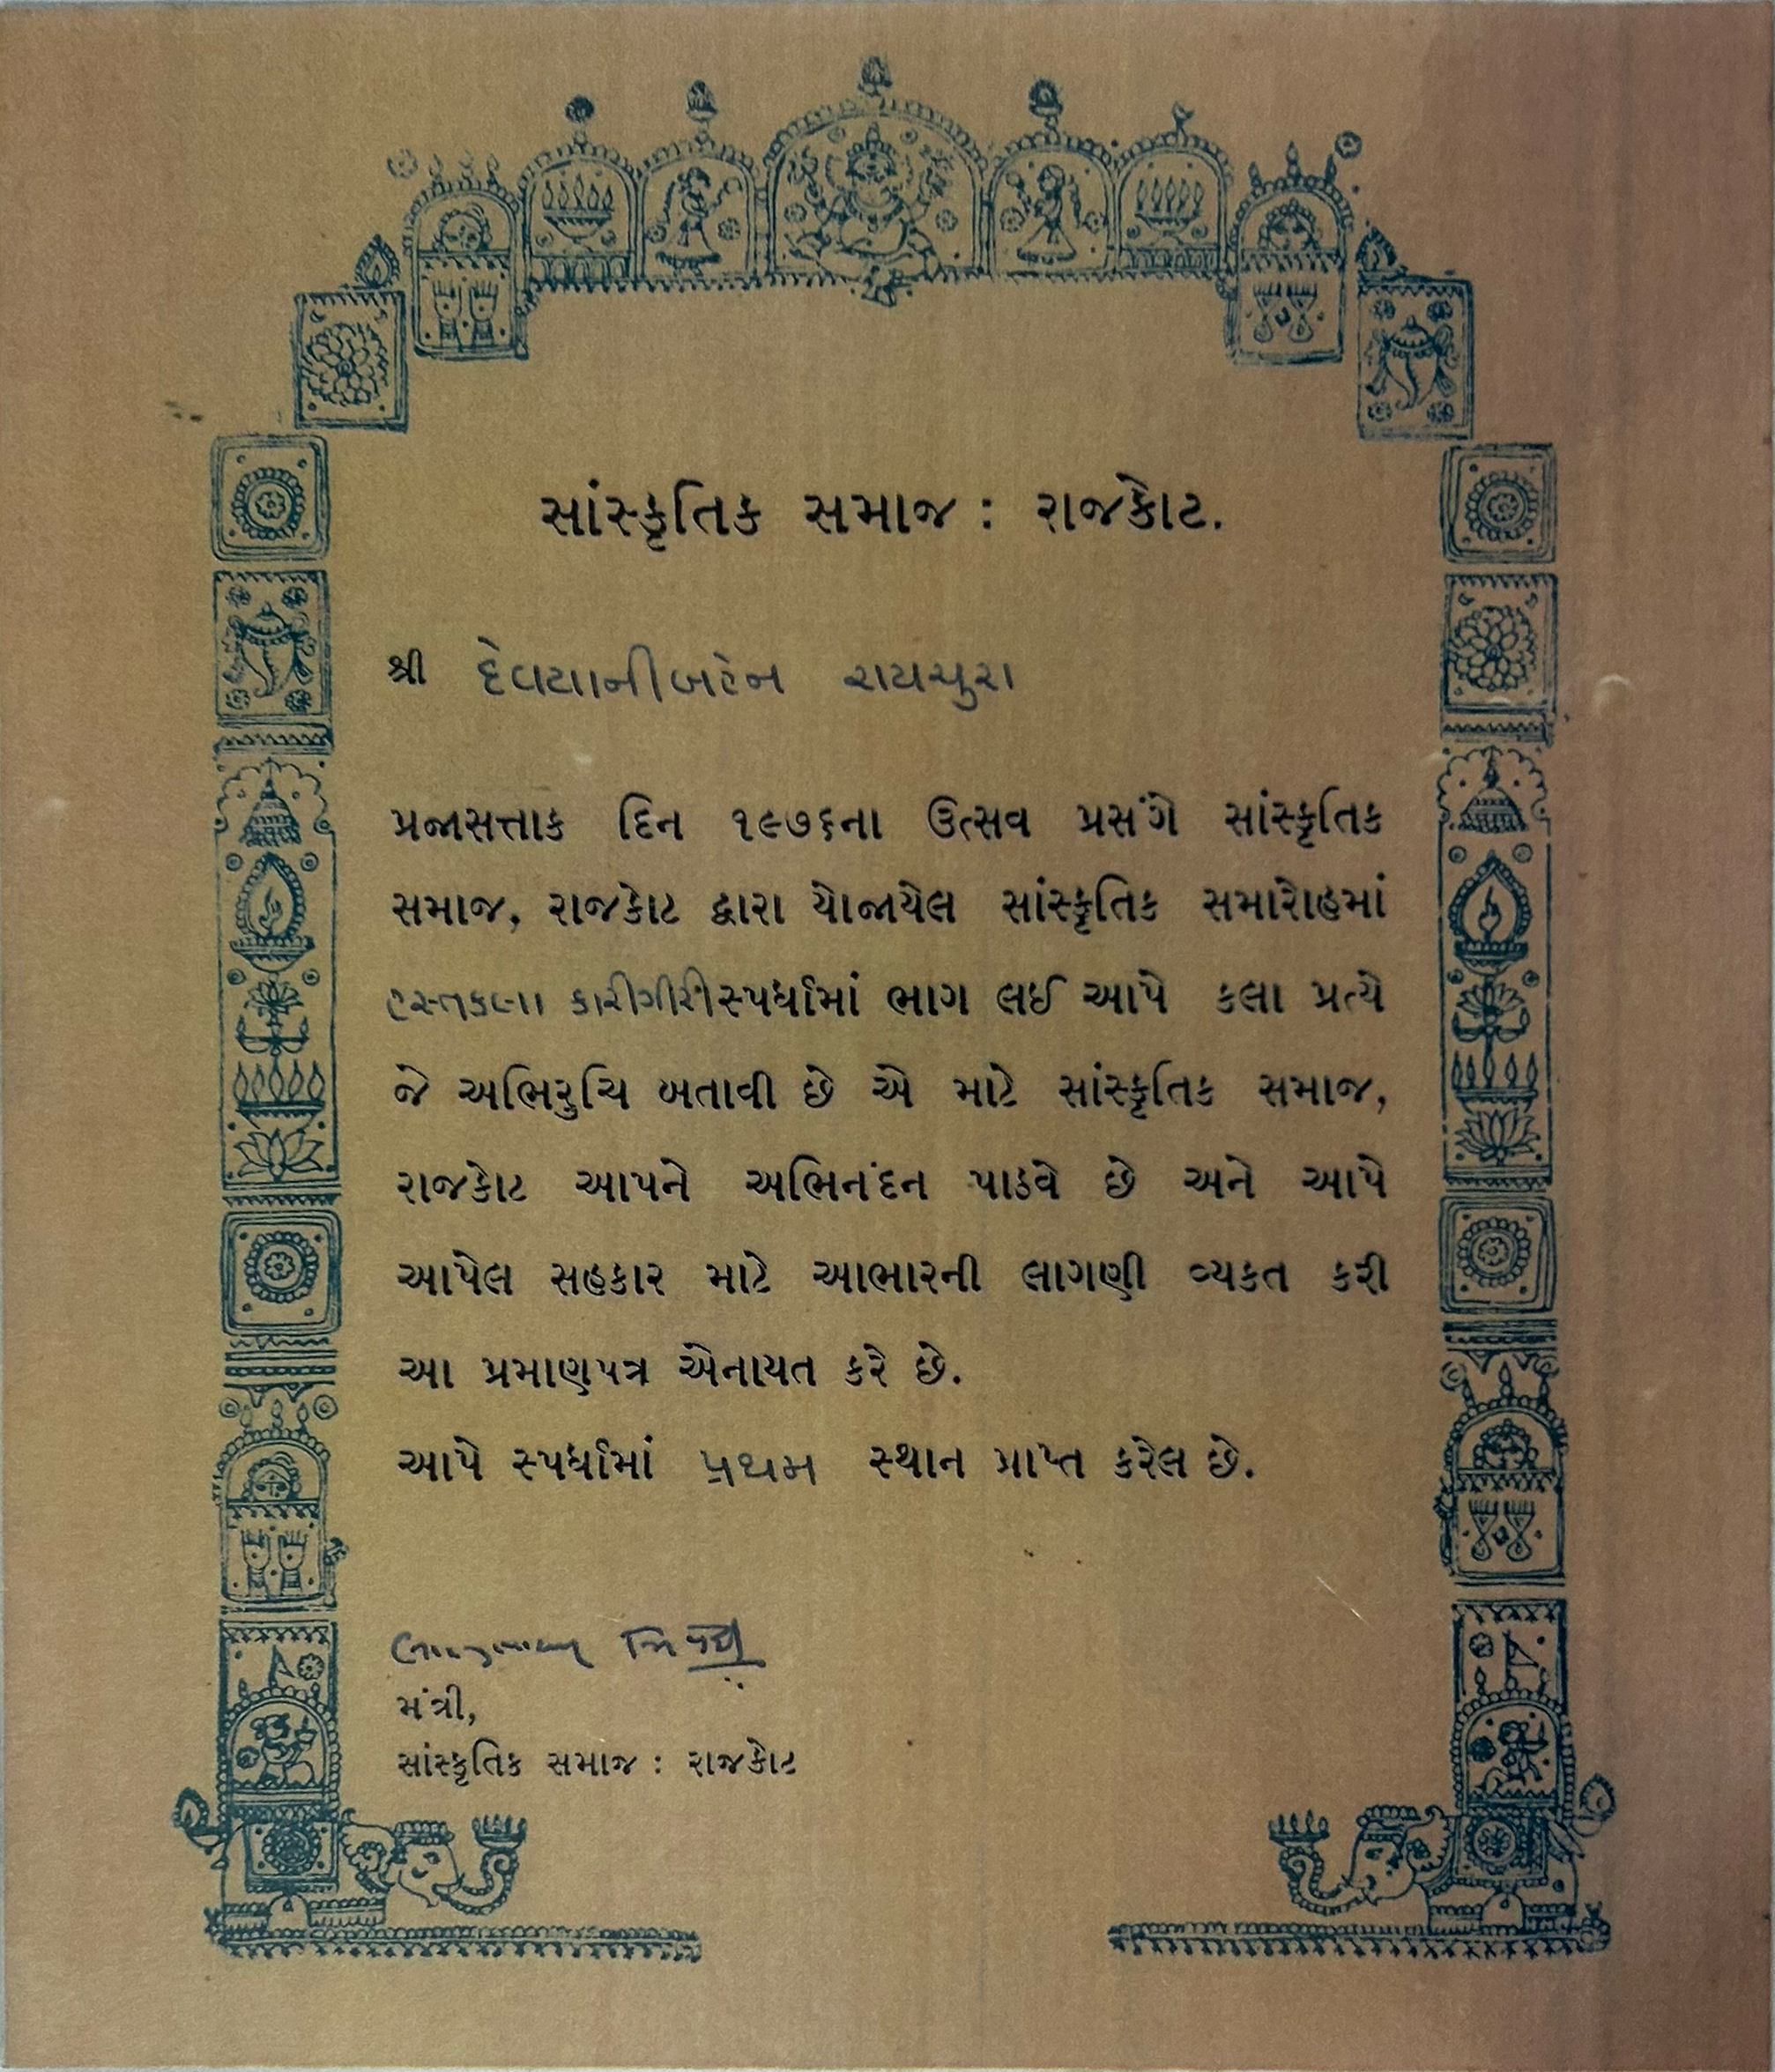 સાંસ્કૃતિક સમાજ : રાજકોટ.
શ્રી દેવયાનીબહેન રાયચુરા
પ્રજાસત્તાક દિન ૧૯૭૬ના ઉત્સવ પ્રસંગે સાંસ્કૃતિક
સમાજ, રાજકોટ દ્વારા યોજાયેલ સાંસ્કૃતિક સમારોહમાં
હસ્તકલા કારીગીરી સ્પર્ધામાં ભાગ લઈ આપે કલા પ્રત્યે
જે અભિરુચિ બતાવી છે એ માટે સાંસ્કૃતિક સમાજ,
રાજકોટ આપને અભિનંદન પાઠવે છે અને આપે
આપેલ સહકાર માટે આભારની લાગણી વ્યકત કરી
આ પ્રમાણપત્ર એનાયત કરે છે.
આપે સ્પર્ધામાં પ્રથમ સ્થાન પ્રાપ્ત કરેલ છે.
મંત્રી,
સાંસ્કૃતિક સમાજ : રાજકોટ